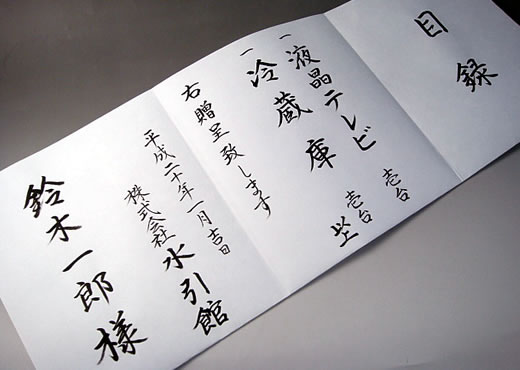 目録
一液晶テレビ 壱台
一冷蔵庫 壱台
以上
右贈呈致します
平成二十年一月吉日
株式会社 水引館
鈴木一郎様